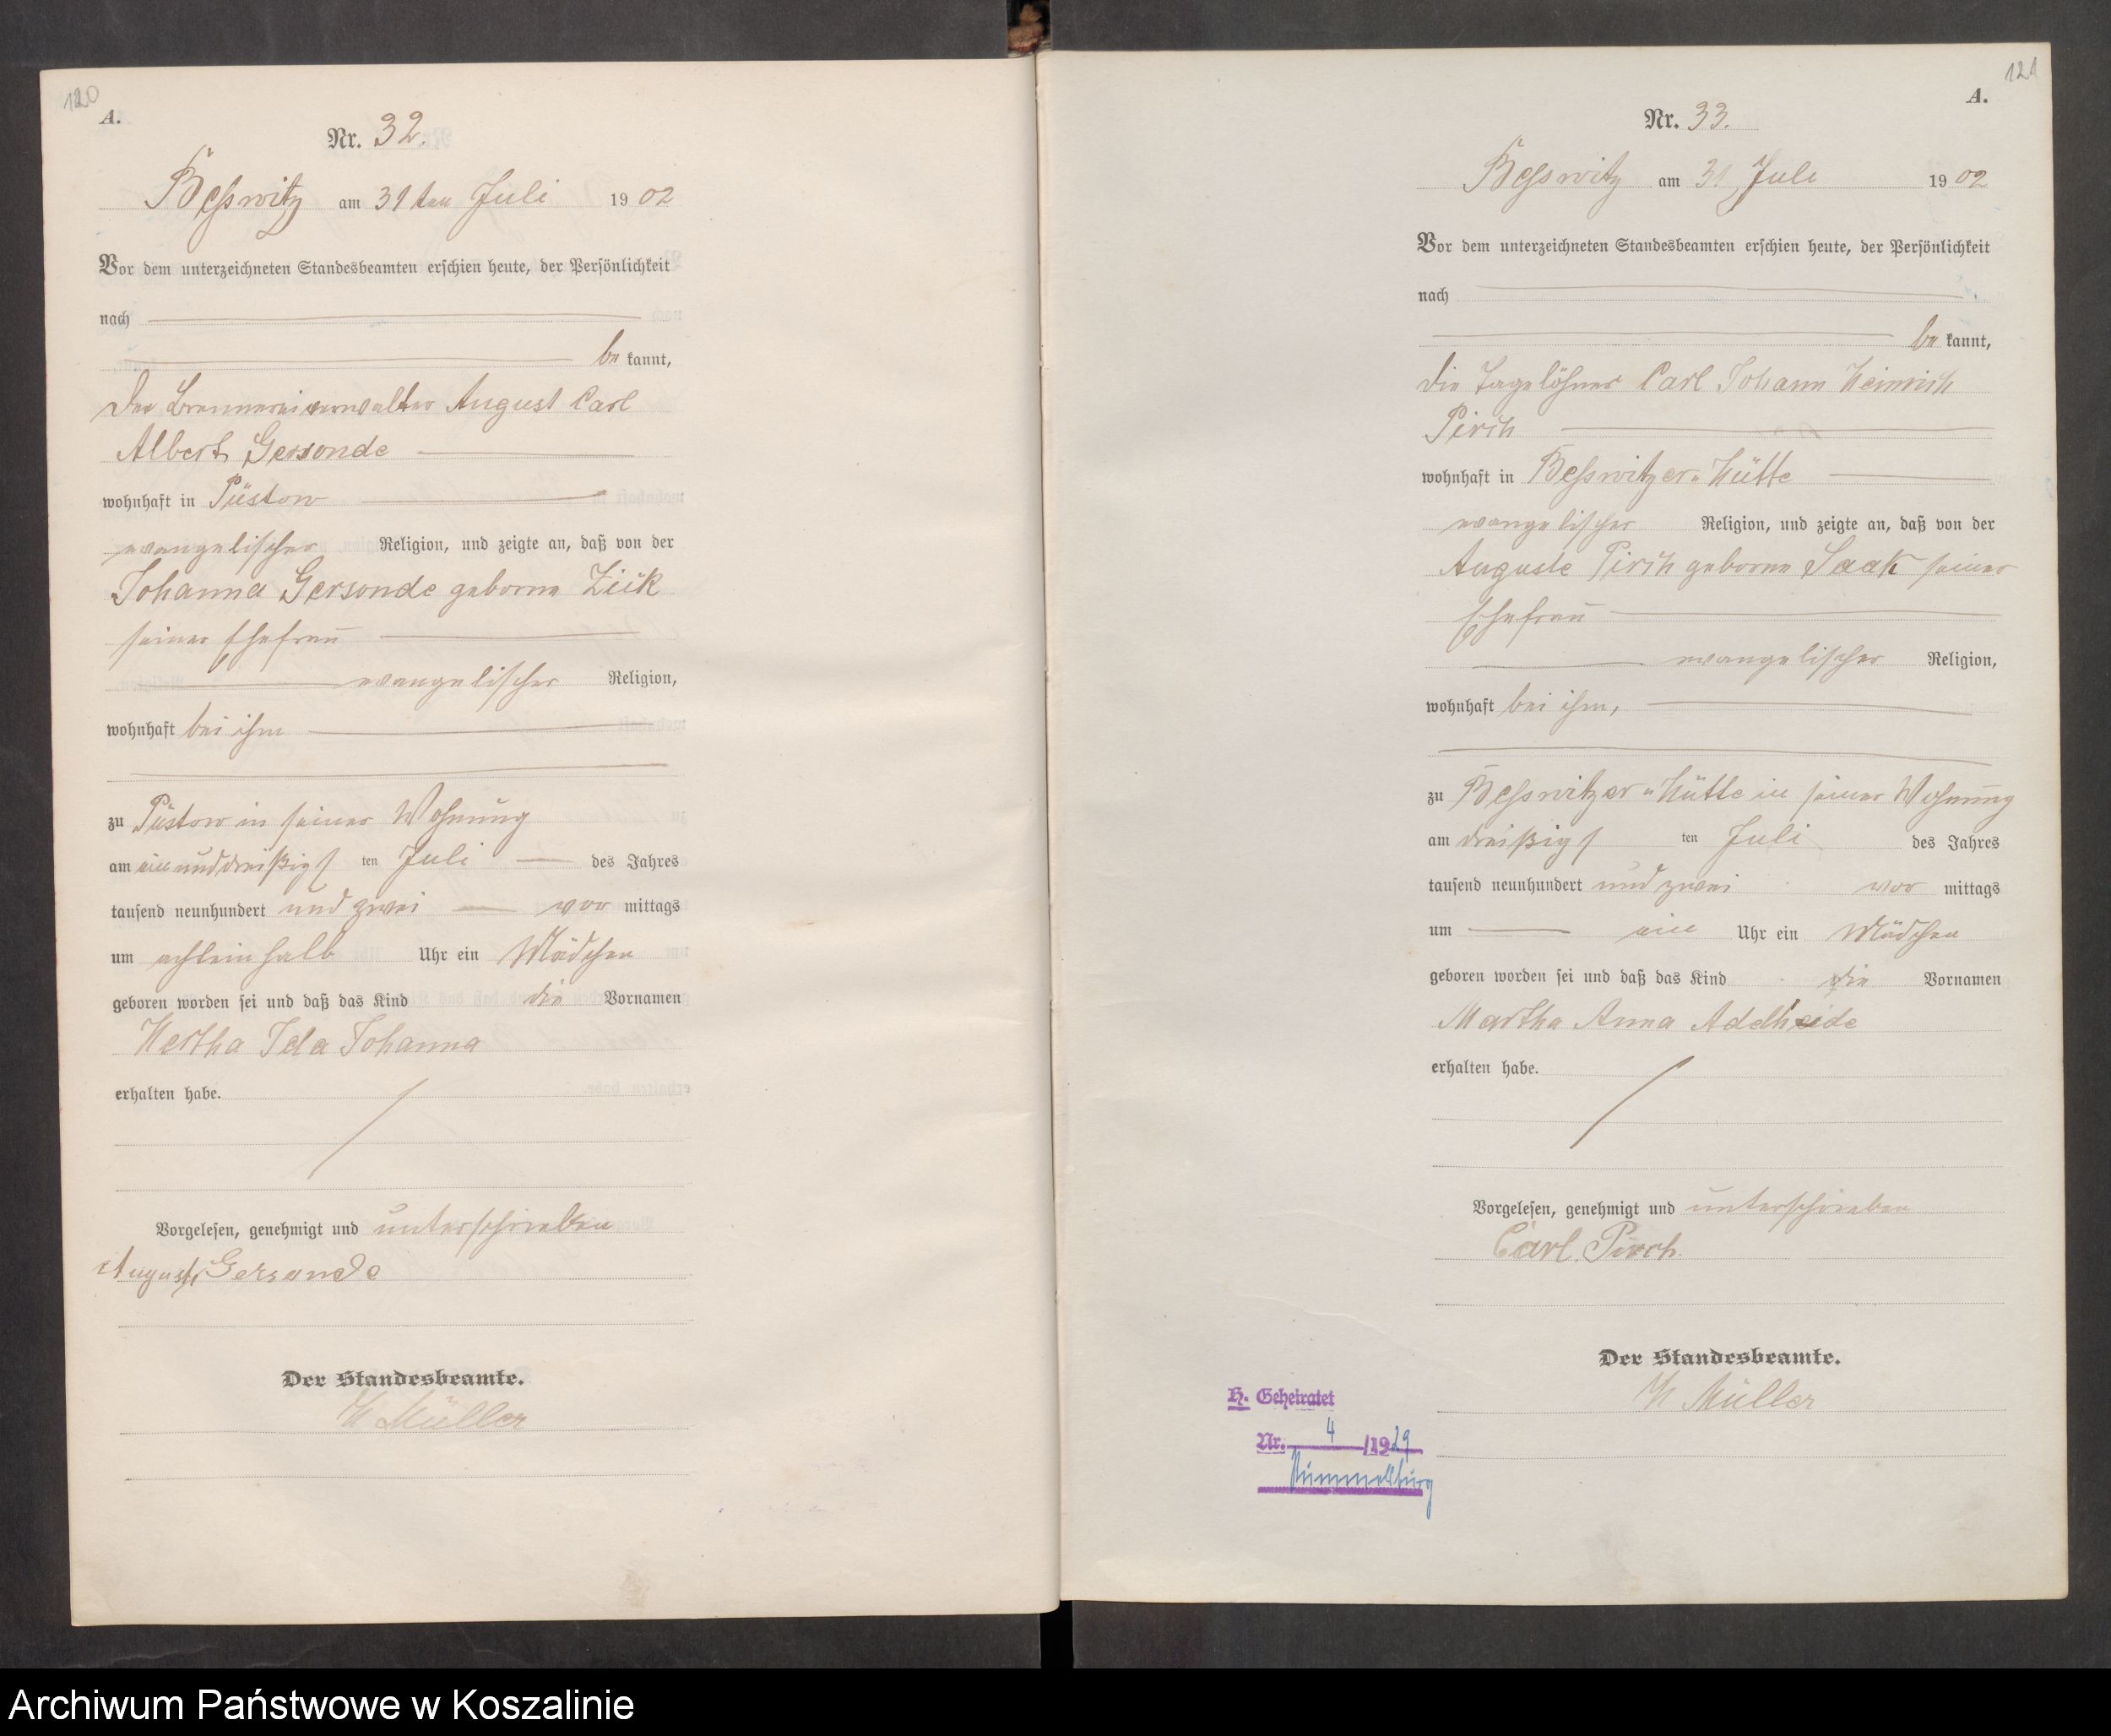 120
A.
Nr. 32.
Beßwitz am 31ten Juli 1902
Vor dem unterzeichneten Standesbeamten erschien heute, der Persönlichkeit
nach
be kannt,
der Brennereiverwalter August Carl
Albert Gersonde
wohnhaft in Püstow
evangelischer Religion, und zeigte an, daß von der
Johanna Gersonde geborne Zick
seiner Ehefrau
evangelischer Religion,
wohnhaft bei ihm
zu Püstow in seiner Wohnung
am einunddreißigs ten Juli des Jahres
tausend neunhundert und zwei vor mittags
um achteinhalb Uhr ein Mädchen
geboren worden sei und daß das Kind die Vornamen
Hertha Ida Johanna
erhalten habe.
Vorgelesen, genehmigt und unterschrieben
August Gersonde
Der Standesbeamte.
Müller
121
A.
Nr. 33.
Beßwitz am 31 Juli 1902
Vor dem unterzeichneten Standesbeamten erschien heute, der Persönlichkeit
nach
be kannt,
die Tagelöhner Carl Johann Heinrich
Pirch
wohnhaft in Beßwitzer-Hütte
evangelischer Religion, und zeigte an, daß von der
Auguste Pirch geborne Saak seiner
Ehefrau
evangelischer Religion,
wohnhaft bei ihm,
zu Beßwitzer-Hütte in seiner Wohnung
am dreißigs ten Juli des Jahres
tausend neunhundert und zwei vor mittags
um ein Uhr ein Mädchen
geboren worden sei und daß das Kind die Vornamen
Martha Anna Adelheide
erhalten habe.
Vorgelesen, genehmigt und unterschrieben
Carl Pirch.
Der Standesbeamte.
Müller
H. Geheiratet
Nr. 4 /1929
Rummelsburg
Archiwum Państwowe w Koszalinie